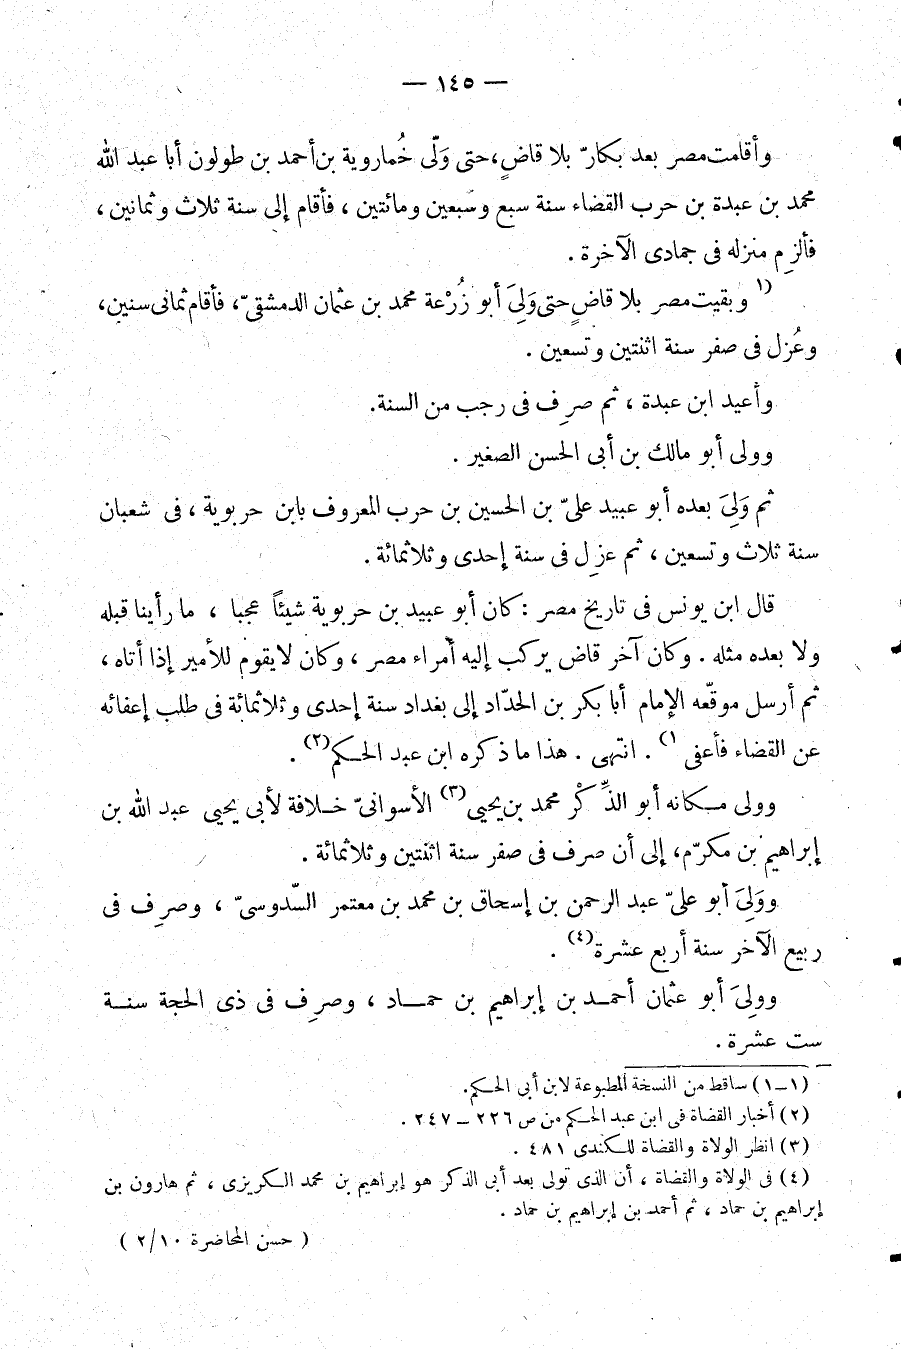 — ١٤٥ —
وأقامت مصر بعد بكارّ بلا قاضٍ، حتى وَلّى خُمارويةَ بن أحمد بن طولون أبا عبد الله
محمد بن عبدة بن حرب القضاء سنة سبع وسبعين ومائتين ، فأقام إلى سنة ثلاث وثمانين ،
فألزِم منزله فى جمادى الآخرة .
(١ وبقيت مصر بلا قاضٍ حتى وَلِىَ أبو زُرْعة محمد بن عثمان الدمشقىّ، فأقام ثمانى سنين،
وعُزل فى صفر سنة اثنتين وتسعين .
وأعيد ابن عبدة ، ثم صرِف فى رجب من السنة.
وولى أبو مالك بن أبى الحسن الصغير .
ثم وَلِىَ بعده أبو عبيد علىّ بن الحسين بن حرب المعروف بابن حربوية ، فى شعبان
سنة ثلاث وتسعين ، ثم عزِل فى سنة إحدى وثلاثمائة .
قال ابن يونس فى تاريخ مصر : كان أبو عبيد بن حربوية شيئاً عجبا ، ما رأينا قبله
ولا بعده مثله . وكان آخر قاض يركب إليه أمراء مصر ، وكان لايقوم للأمير إذا أتاه ،
ثم أرسل موقّعه الإمام أبا بكر بن الحدّاد إلى بغداد سنة إحدى وثلاثمائة فى طلب إعفائه
عن القضاء فأعفى ١) . انتهى . هذا ما ذكره ابن عبد الحكم(٢) .
وولى مكانه أبو الذِّكْر محمد بن يحيى(٣) الأسوانىّ خلافة لأبى يحيى عبد الله بن
إبراهيم بن مكرّم، إلى أن صرف فى صفر سنة اثنتين وثلاثمائة .
ووَلِىَ أبو علىّ عبد الرحمن بن إسحاق بن محمد بن معتمر السّدوسىّ ، وصرِف فى
ربيع الآخر سنة أربع عشرة(٤) .
وولِىَ أبو عثمان أحمد بن إبراهيم بن حماد ، وصرِف فى ذى الحجة سنة
ست عشرة .
(١-١) ساقط من النسخة المطبوعة لابن أبى الحكم.
(٢) أخبار القضاة فى ابن عبد الحكم من ص ٢٢٦ - ٢٤٧ .
(٣) انظر الولاة والقضاة للكندى ٤٨١ .
(٤) فى الولاة والقضاة ، أن الذى تولى بعد أبى الذكر هو إبراهيم بن محمد الكريزى ، ثم هارون بن
إبراهيم بن حماد ، ثم أحمد بن إبراهيم بن حماد .
( حسن المحاضرة ٢/١٠ )